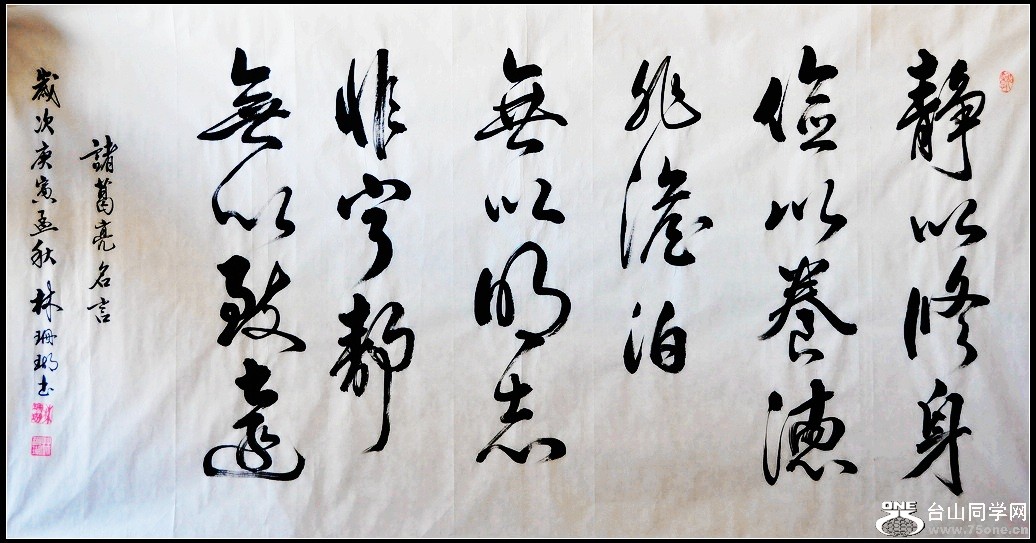 靜以修身
儉以養德
非澹泊
無以明志
非寧靜
無以致遠
諸葛亮名言
歲次庚寅孟秋 林珊瑚书
ONE
台山同学网
www.75one.cn